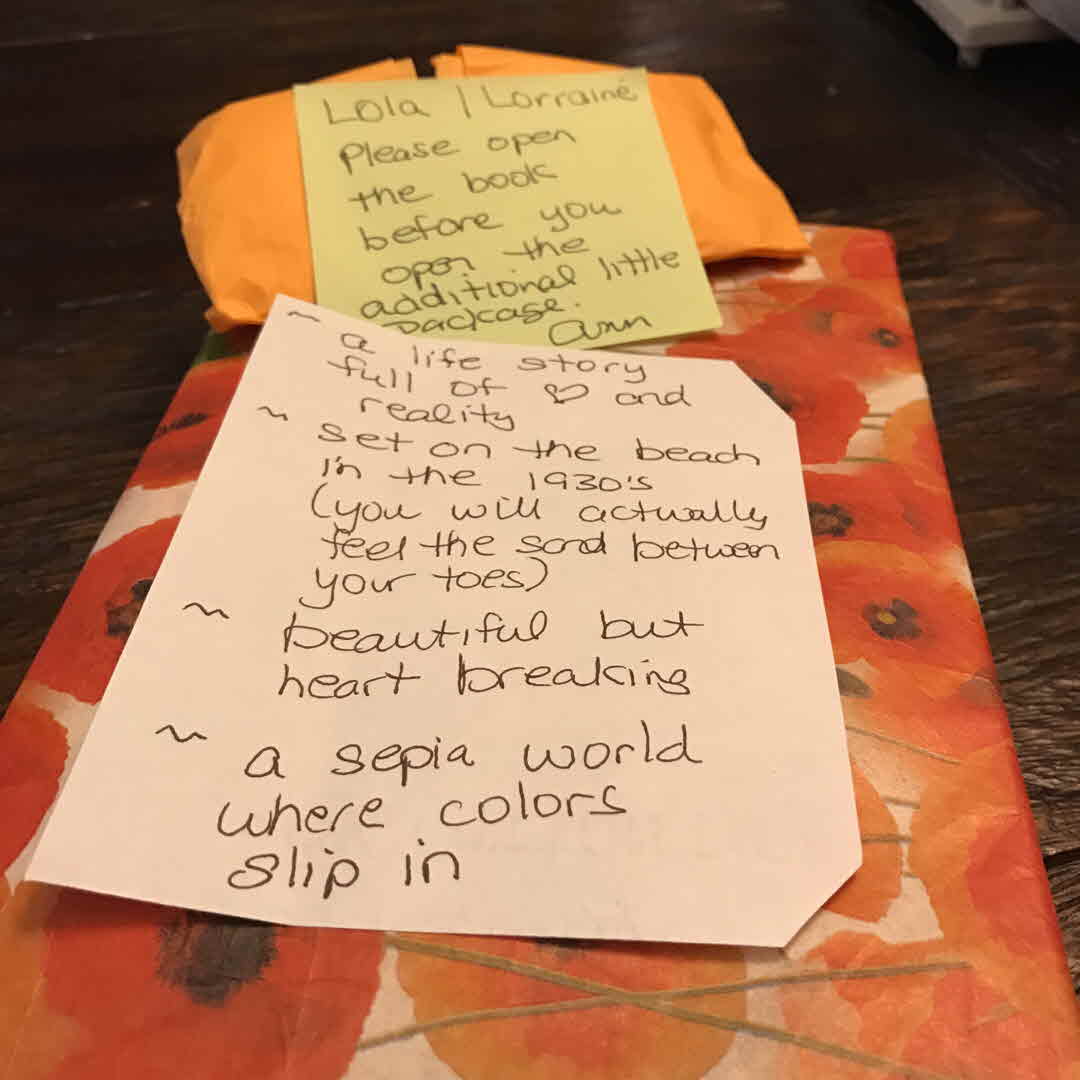 Lola / Lorraine
Please open
the book
before you
open the
additional little
package.
Ann
~ a life story
full of ♡ and
reality
~ set on the beach
in the 1930's
(you will actually
feel the sand between
your toes)
~ beautiful but
heart breaking
~ a sepia world
where colors
slip in